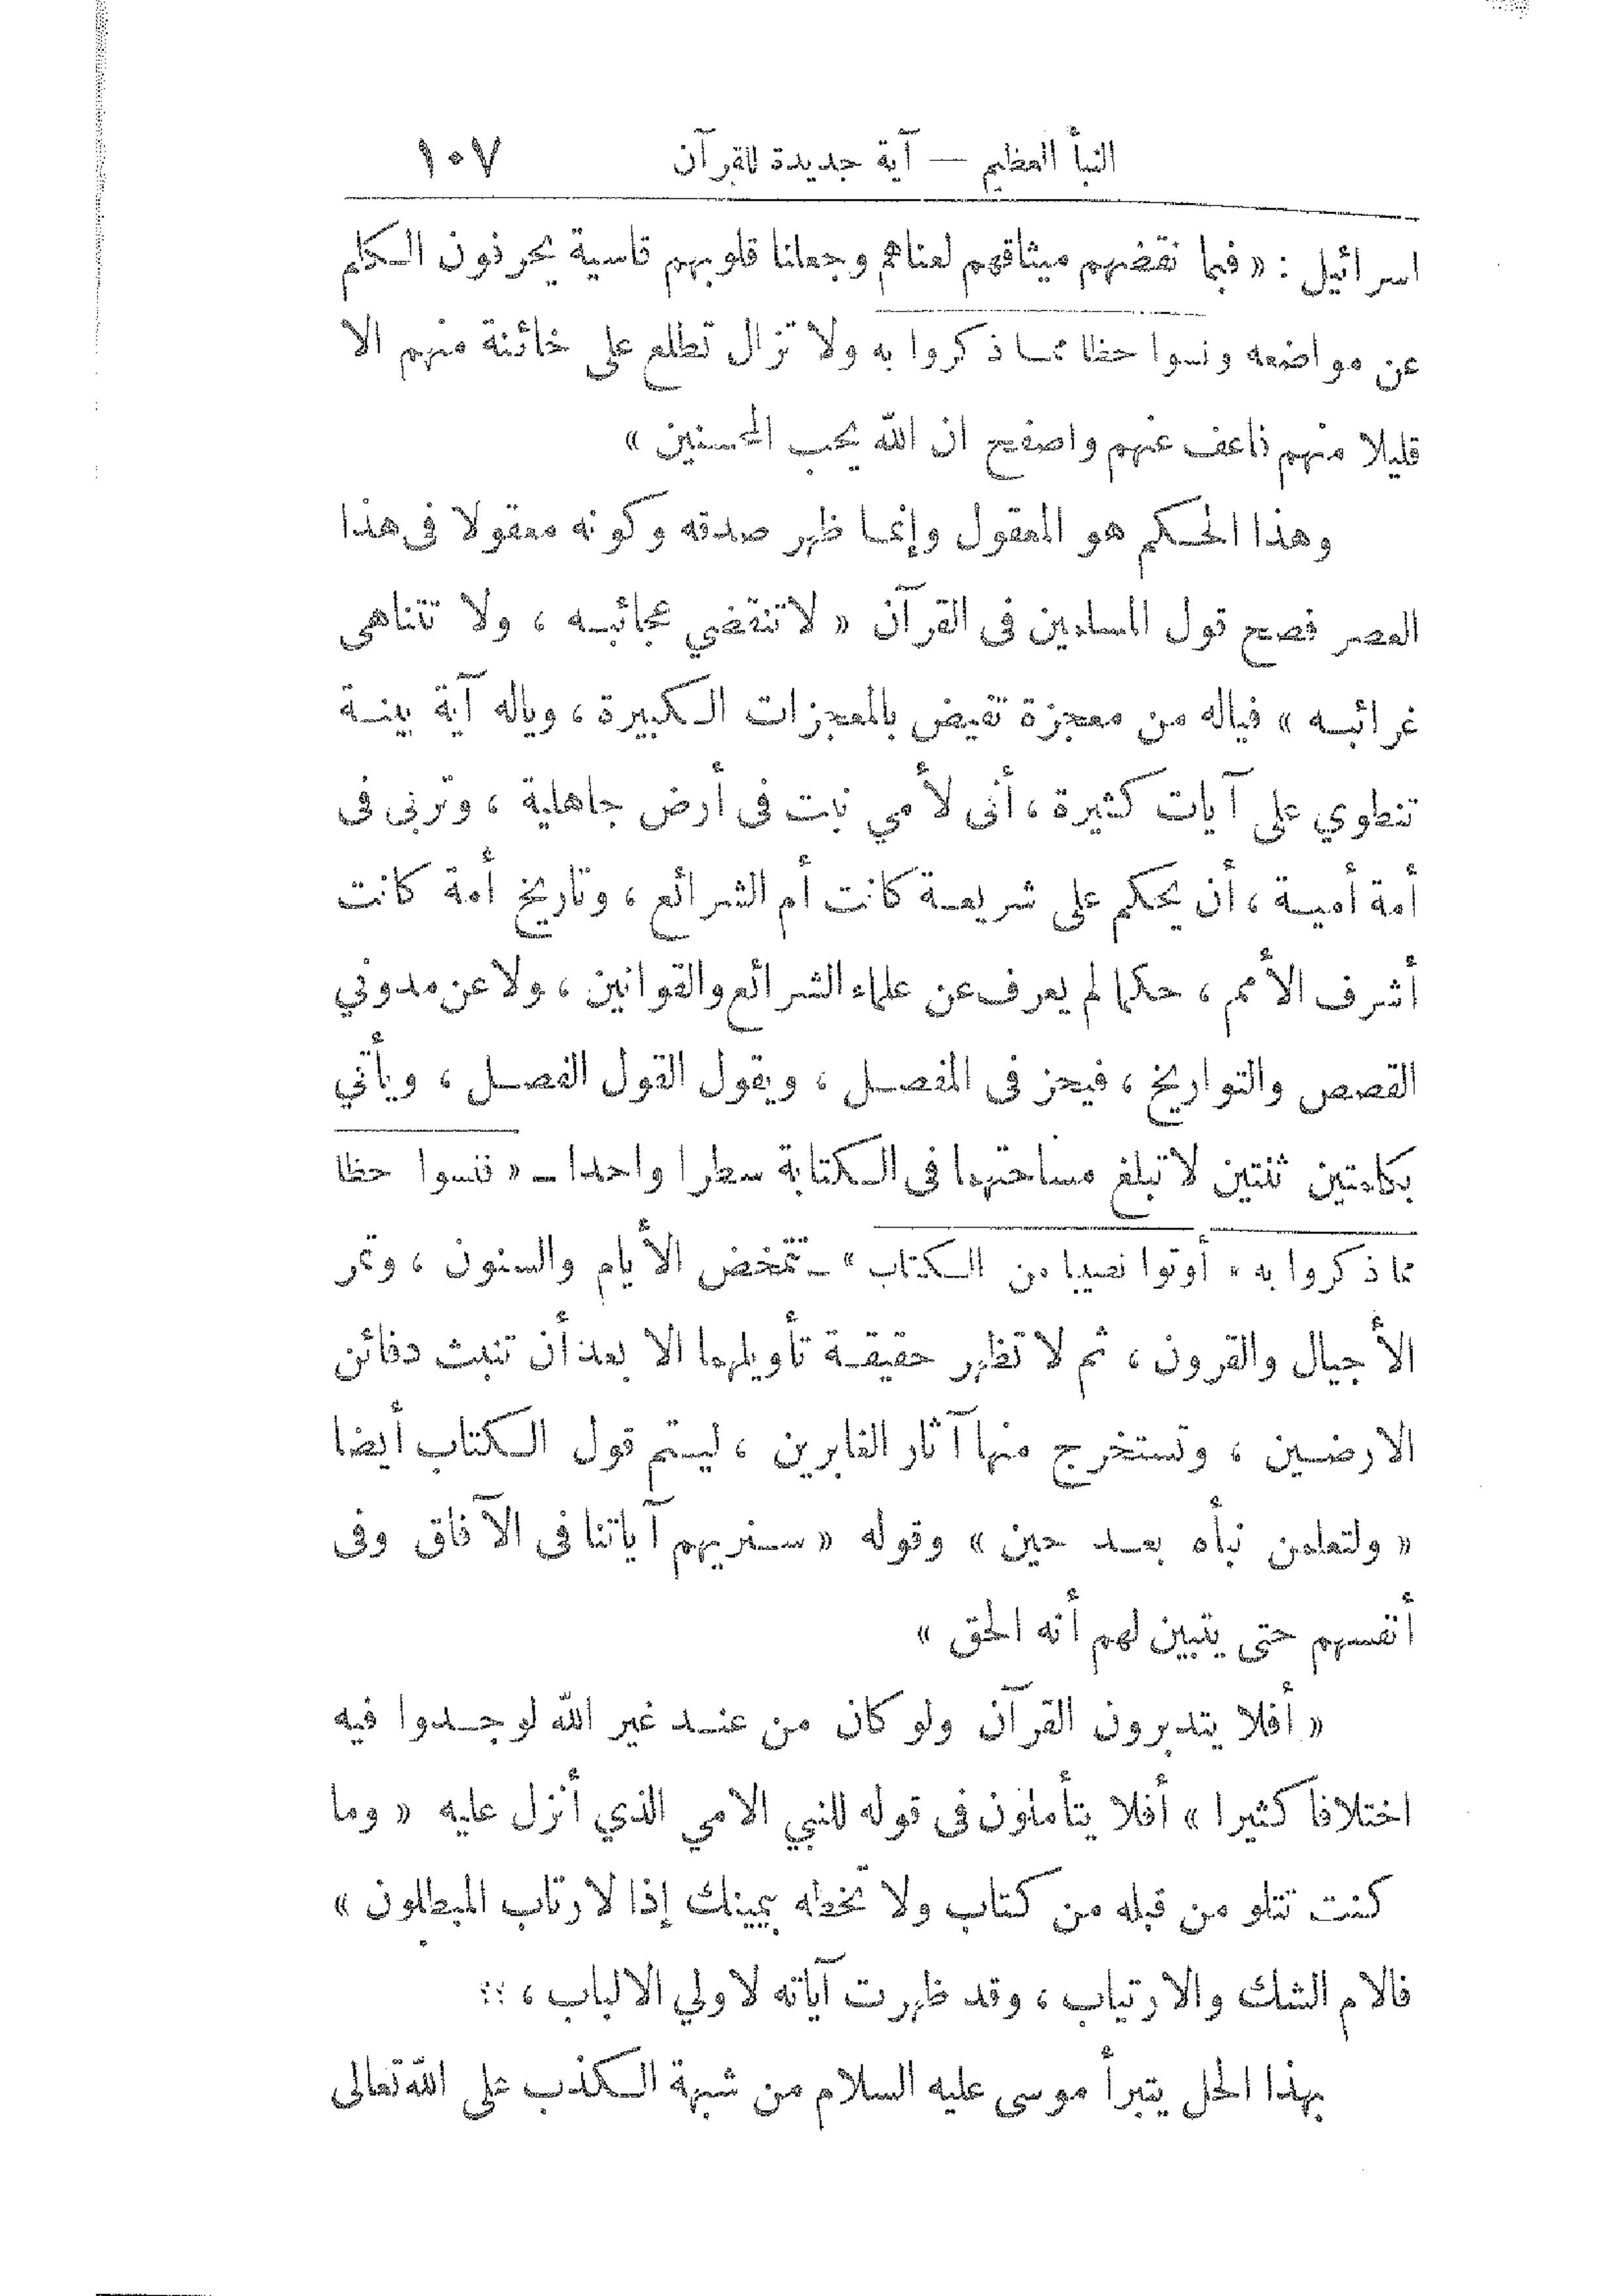 النبأ العظيم — آية جديدة للقرآن ١٠٧
اسرائيل : « فبما نقضهم ميثاقهم لعناهم وجعلنا قلوبهم قاسية يحرفون الكلم
عن مواضعه ونسوا حظا مما ذكروا به ولا تزال تطلع على خائنة منهم الا
قليلا منهم فاعف عنهم واصفح ان الله يحب المحسنين »
وهذا الحكم هو المعقول وإنما ظهر صدقه وكونه معقولا في هذا
العصر فصح قول المسلمين في القرآن « لا تنقضي عجائبه ، ولا تتناهى
غرائبه » فياله من معجزة تفيض بالمعجزات الكبيرة ، وياله آية بينة
تنطوي على آيات كثيرة ، أنى لأمي نبت في أرض جاهلية ، وتربى في
أمة أمية ، أن يحكم على شريعة كانت أم الشرائع ، وتاريخ أمة كانت
أشرف الأمم ، حكما لم يعرف عن علماء الشرائع والقوانين ، ولا عن مدوني
القصص والتواريخ ، فيحز في المفصل ، ويقول القول الفصل ، ويأتي
بكلمتين ثنتين لا تبلغ مساحتهما في الكتابة سطرا واحدا ــ « فنسوا حظا
مما ذكروا به ، أوتوا نصيبا من الكتاب » ــ تتمخض الأيام والسنون ، وتمر
الأجيال والقرون ، ثم لا تظهر حقيقة تأويلهما الا بعد أن تنبث دفائن
الارضين ، وتستخرج منها آثار الغابرين ، ليتم قول الكتاب أيضا
« ولتعلمن نبأه بعد حين » وقوله « سنريهم آياتنا في الآفاق وفي
أنفسهم حتى يتبين لهم أنه الحق »
« أفلا يتدبرون القرآن ولو كان من عند غير الله لوجدوا فيه
اختلافا كثيرا » أفلا يتأملون في قوله للنبي الامي الذي أنزل عليه « وما
كنت تتلو من قبله من كتاب ولا تخطه بيمينك إذا لارتاب المبطلون »
فالام الشك والارتياب ، وقد ظهرت آياته لاولي الالباب ، ::
بهذا الحل يتبرأ موسى عليه السلام من شبهة الكذب على الله تعالى